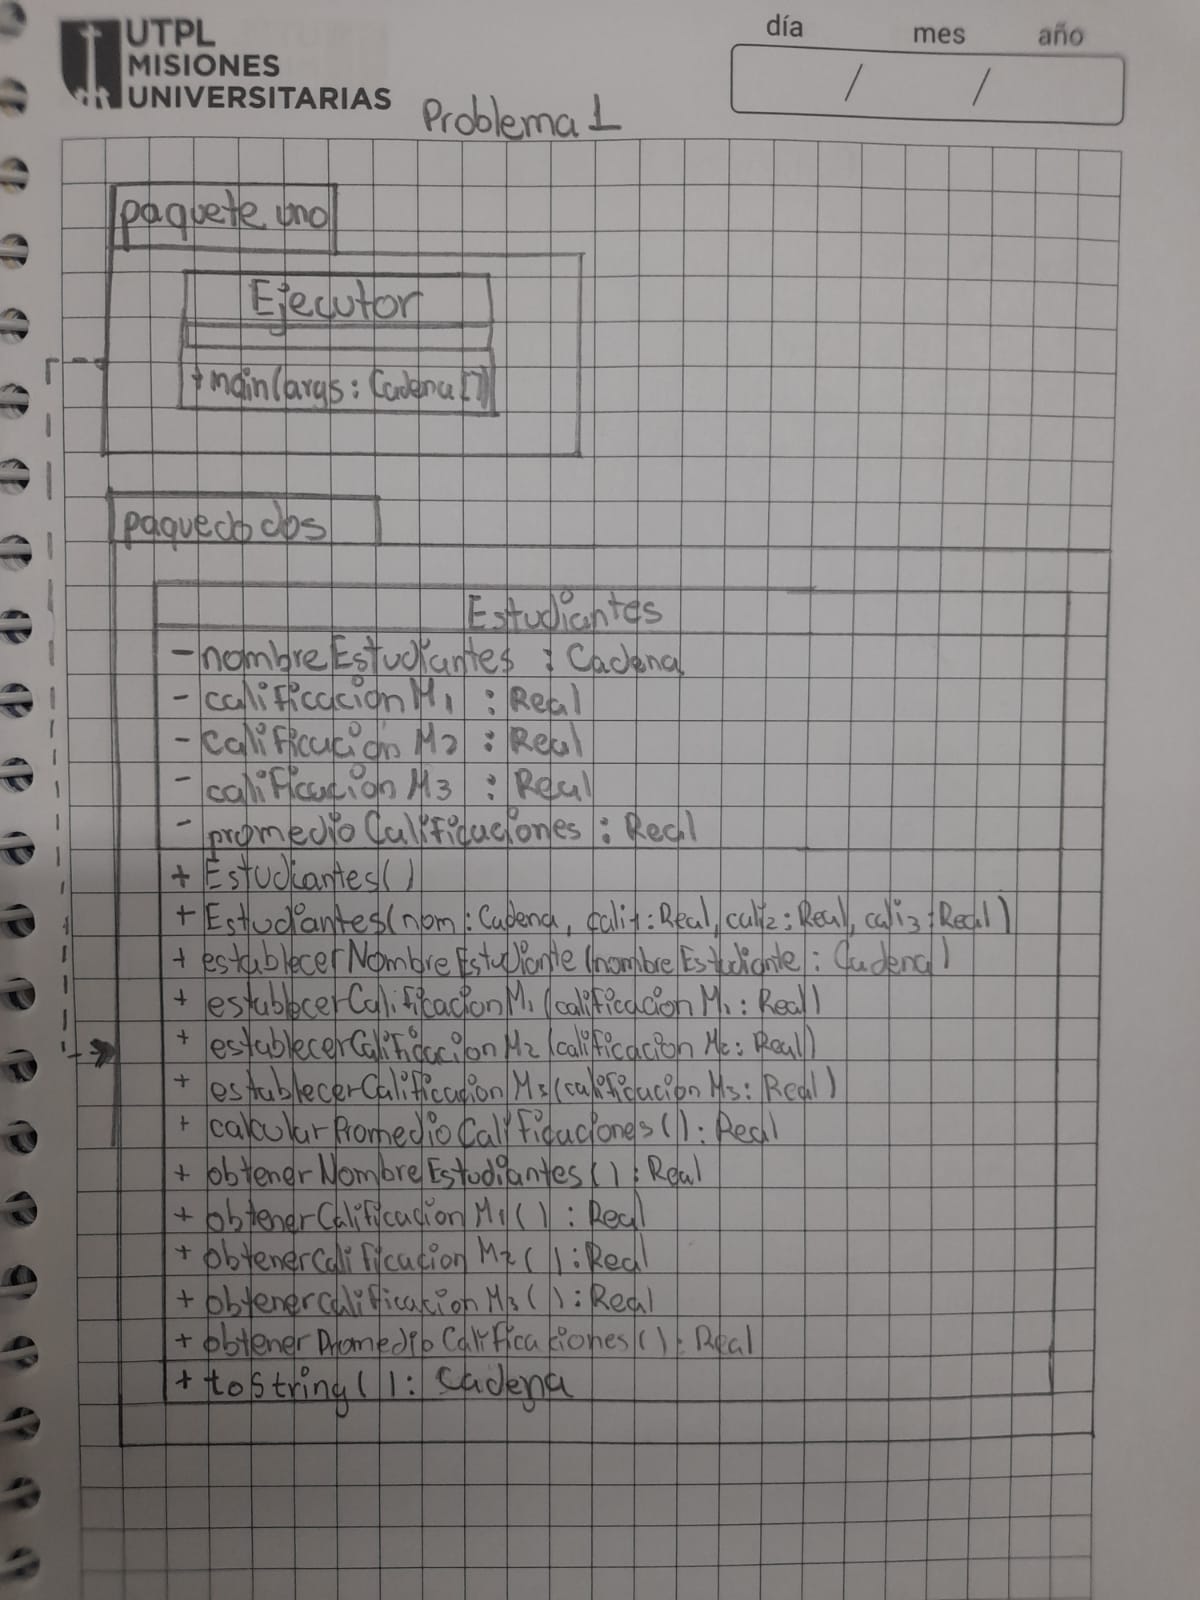 UTPL
MISIONES
UNIVERSITARIAS
día mes año
/ /
Problema 1
paquete uno
Ejecutor
+ main(args: Cadena[])
paquedo dos
Estudiantes
- nombreEstudiantes : Cadena
- calificacionM1 : Real
- calificación M2 : Real
- calificacion M3 : Real
- promedioCalificaciones : Real
+ Estudiantes()
+ Estudiantes(nom: Cadena, cali1: Real, cali2: Real, cali3: Real)
+ establecerNombreEstudiante(nombreEstudiante: Cadena)
+ establecerCalificacionM1(calificacionM1: Real)
+ establecerCalificacionM2(calificacion M2: Real)
+ establecerCalificacionM3(calificacionM3: Real)
+ calcularPromedioCalificaciones(): Real
+ obtenerNombreEstudiantes(): Real
+ obtenerCalificacionM1(): Real
+ obtenercalificacion M2(): Real
+ obtenercalificacionM3(): Real
+ obtenerPromedioCalificaciones(): Real
+ toString(): Cadena